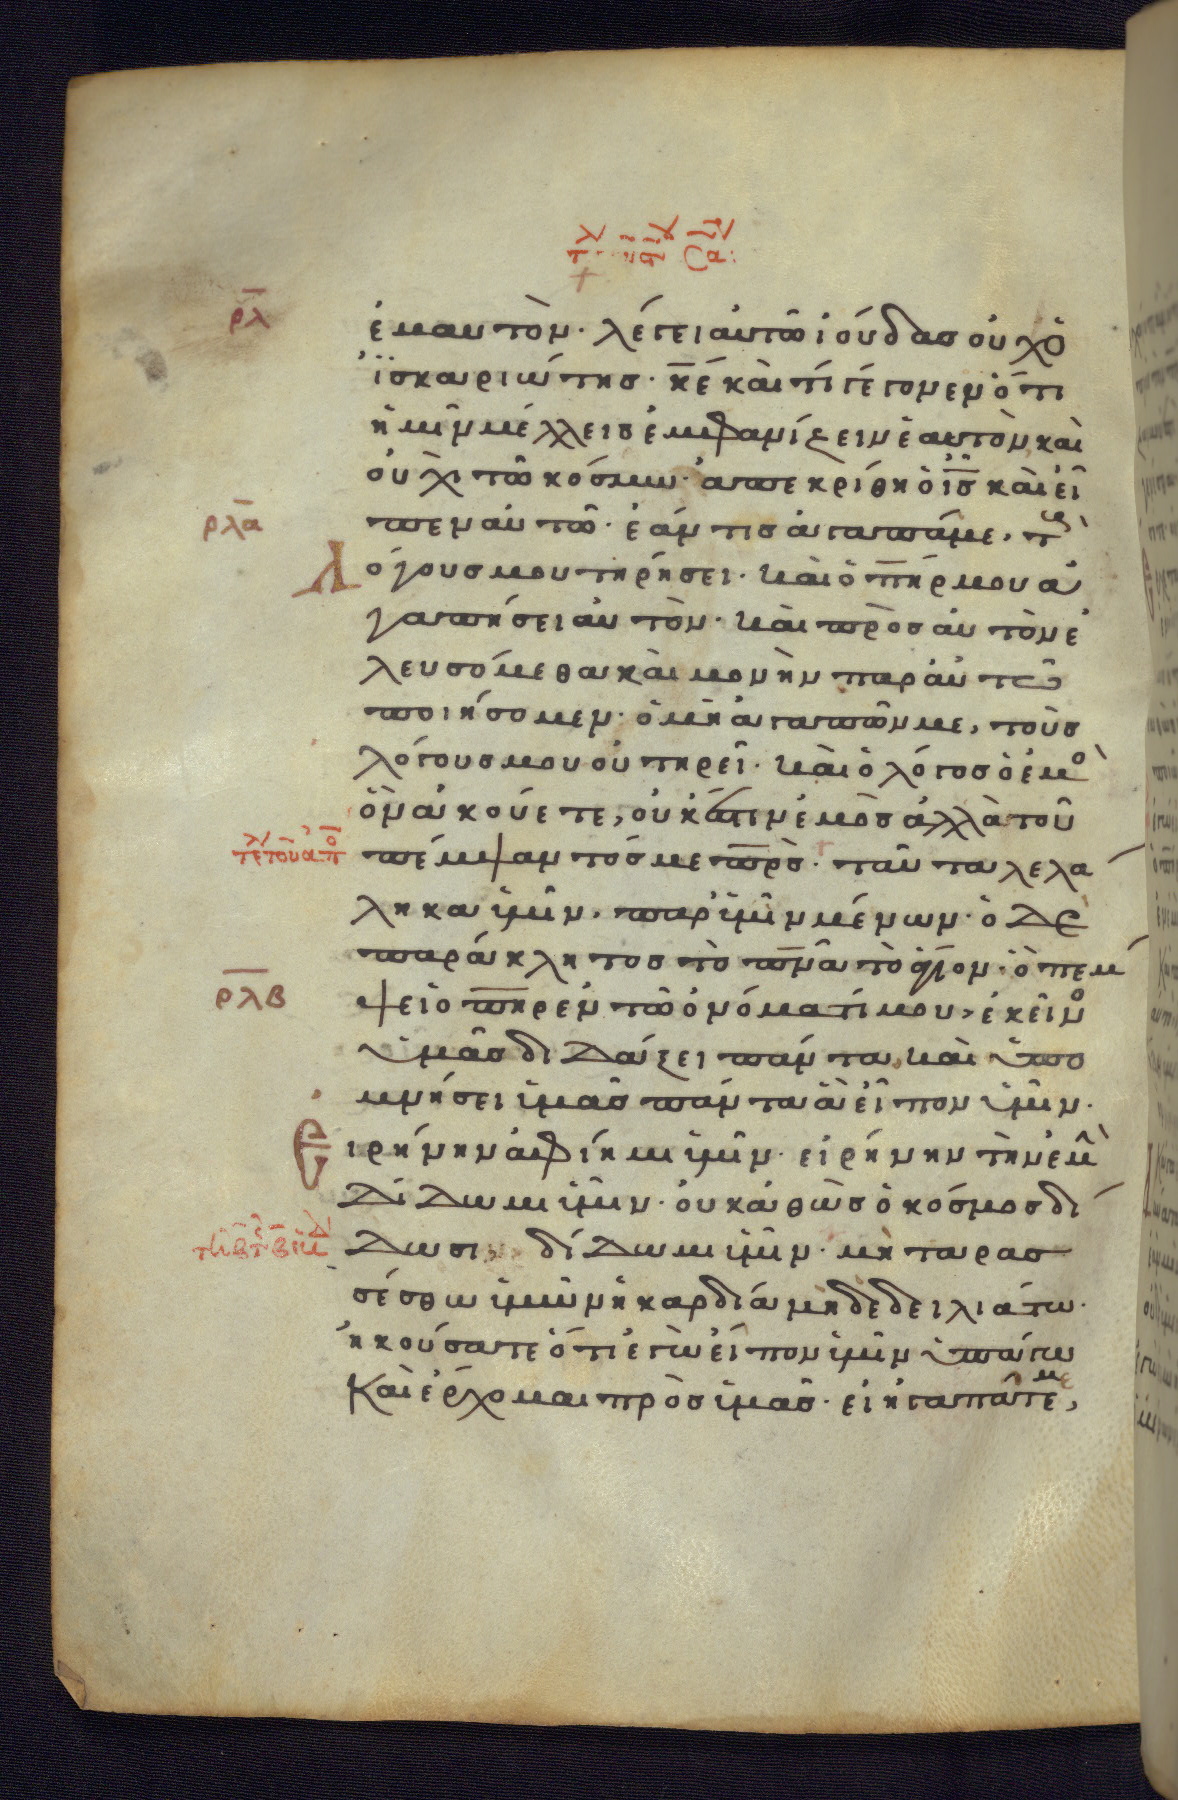 ρλ
ἐμαυτὸν· λέγει αὐτῶ ἰούδας οὐχ ὁ
ἰσκαριώτης· κε καὶ τί γέγονεν ὅτι
ἡμῖν μέλλεις ἐμφανίζειν ἑαυτὸν καὶ
οὐχὶ τῶ κόσμω· ἀπεκρίθη ὁ ις καὶ εἶ
ρλα
πεν αὐτῶ· ἐάν τις ἀγαπᾶ με, τ
λόγους μου τηρήσει· καὶ ὁ πηρ μου ἀ
γαπήσει αὐτὸν· καὶ πρὸς αὐτὸν ἐ
λευσόμεθα καὶ μονὴν παρ' αὐτῶ
ποιήσομεν· ὁ μὴ ἀγαπῶν με, τοὺς
λόγους μου οὐ τηρεῖ· καὶ ὁ λόγος ὁ ἐμο
ὃν ἀκούετε, οὐκ ἔστιν ἐμὸς ἀλλὰ τοῦ
πέμψαντός με πρς· ταῦτα λελά
ληκα ὑμῖν, παρ' ὑμῖν μένων· ὁ δὲ
παράκλητος τὸ πνα τὸ ἅγιον· ὃ πέμ
ρλβ
ψει ὁ πηρ ἐν τῶ ὀνόματί μου, ἐκεῖνο
ὑμᾶς διδάξει πάντα, καὶ ὑπο
μνήσει ὑμᾶς πάντα ἃ εἶπον ὑμῖν·
Εἰρήνην ἀφίημι ὑμῖν· εἰρήνην τὴν ἐμ
δίδωμι ὑμῖν· οὐ καθὼς ὁ κόσμος δί
δωσι, δίδωμι ὑμῖν· μὴ ταρασ
σέσθω ὑμῶν ἡ καρδία μηδὲ δειλιάτω·
ἠκούσατε ὅτι ἐγὼ εἶπον ὑμῖν ὑπάγω
καὶ ἔρχομαι πρὸς ὑμᾶς· εἰ ἠγαπᾶτέ με,